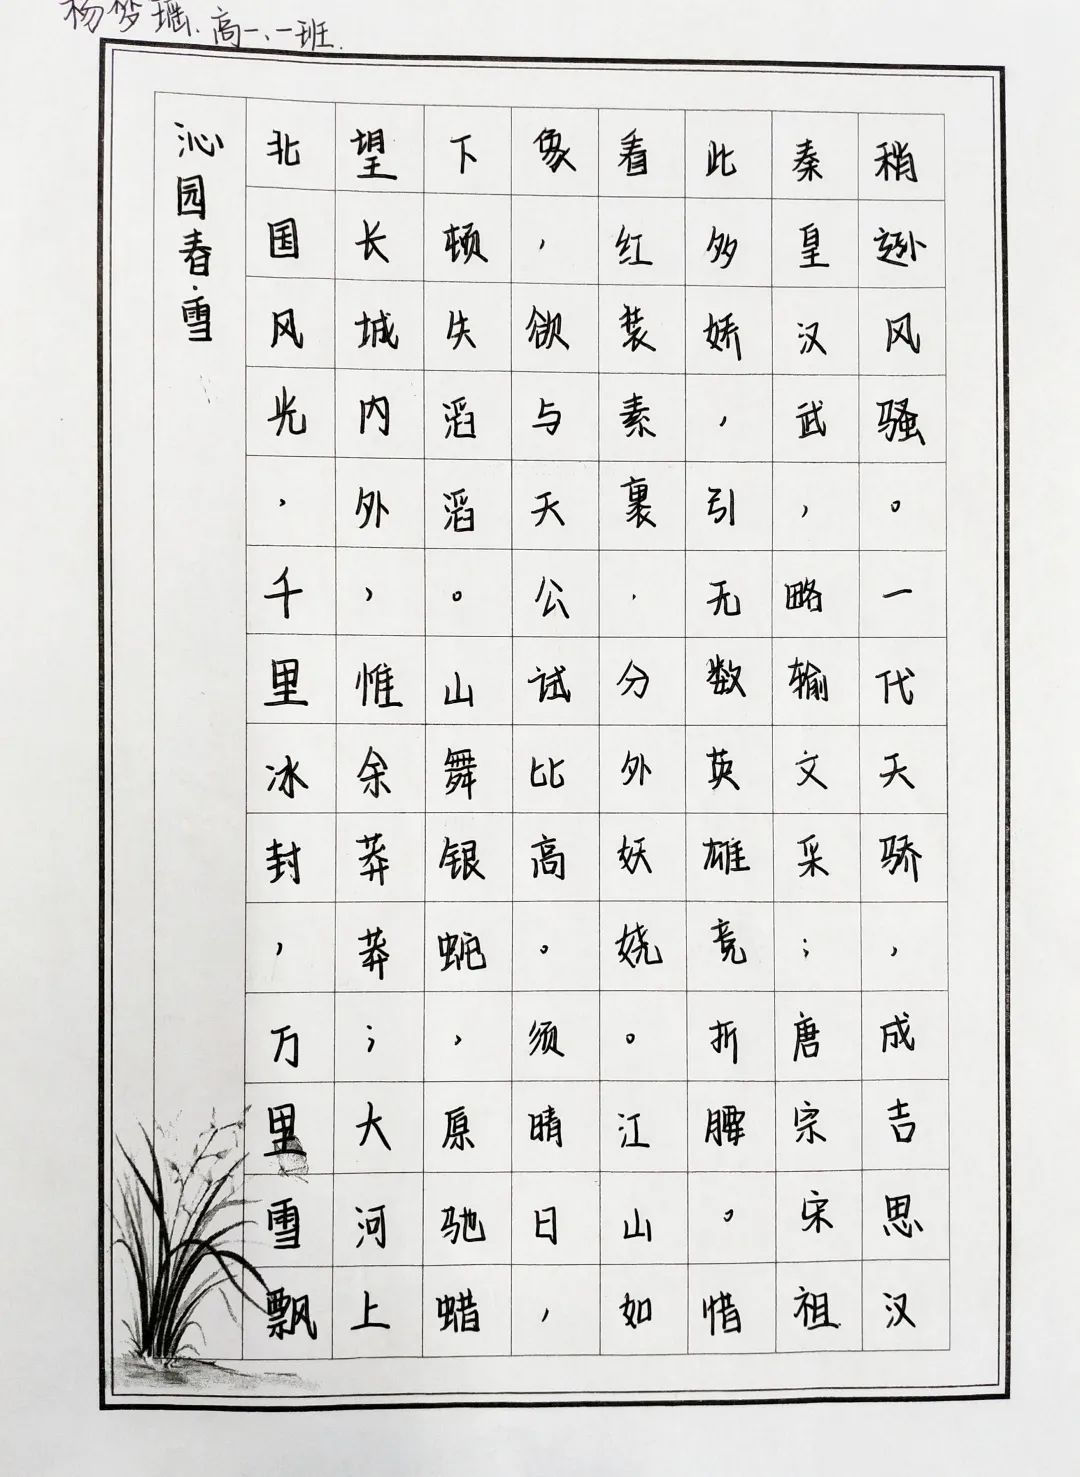 杨梦瑶. 高一、一班.
沁园春·雪
北国风光，千里冰封，万里雪飘
望长城内外，惟余莽莽；大河上
下顿失滔滔。山舞银蛇，原驰蜡
象，欲与天公试比高。须晴日，
看红装素裹，分外妖娆。江山如
此多娇，引无数英雄竞折腰。惜
秦皇汉武，略输文采；唐宗宋祖
稍逊风骚。一代天骄，成吉思汉